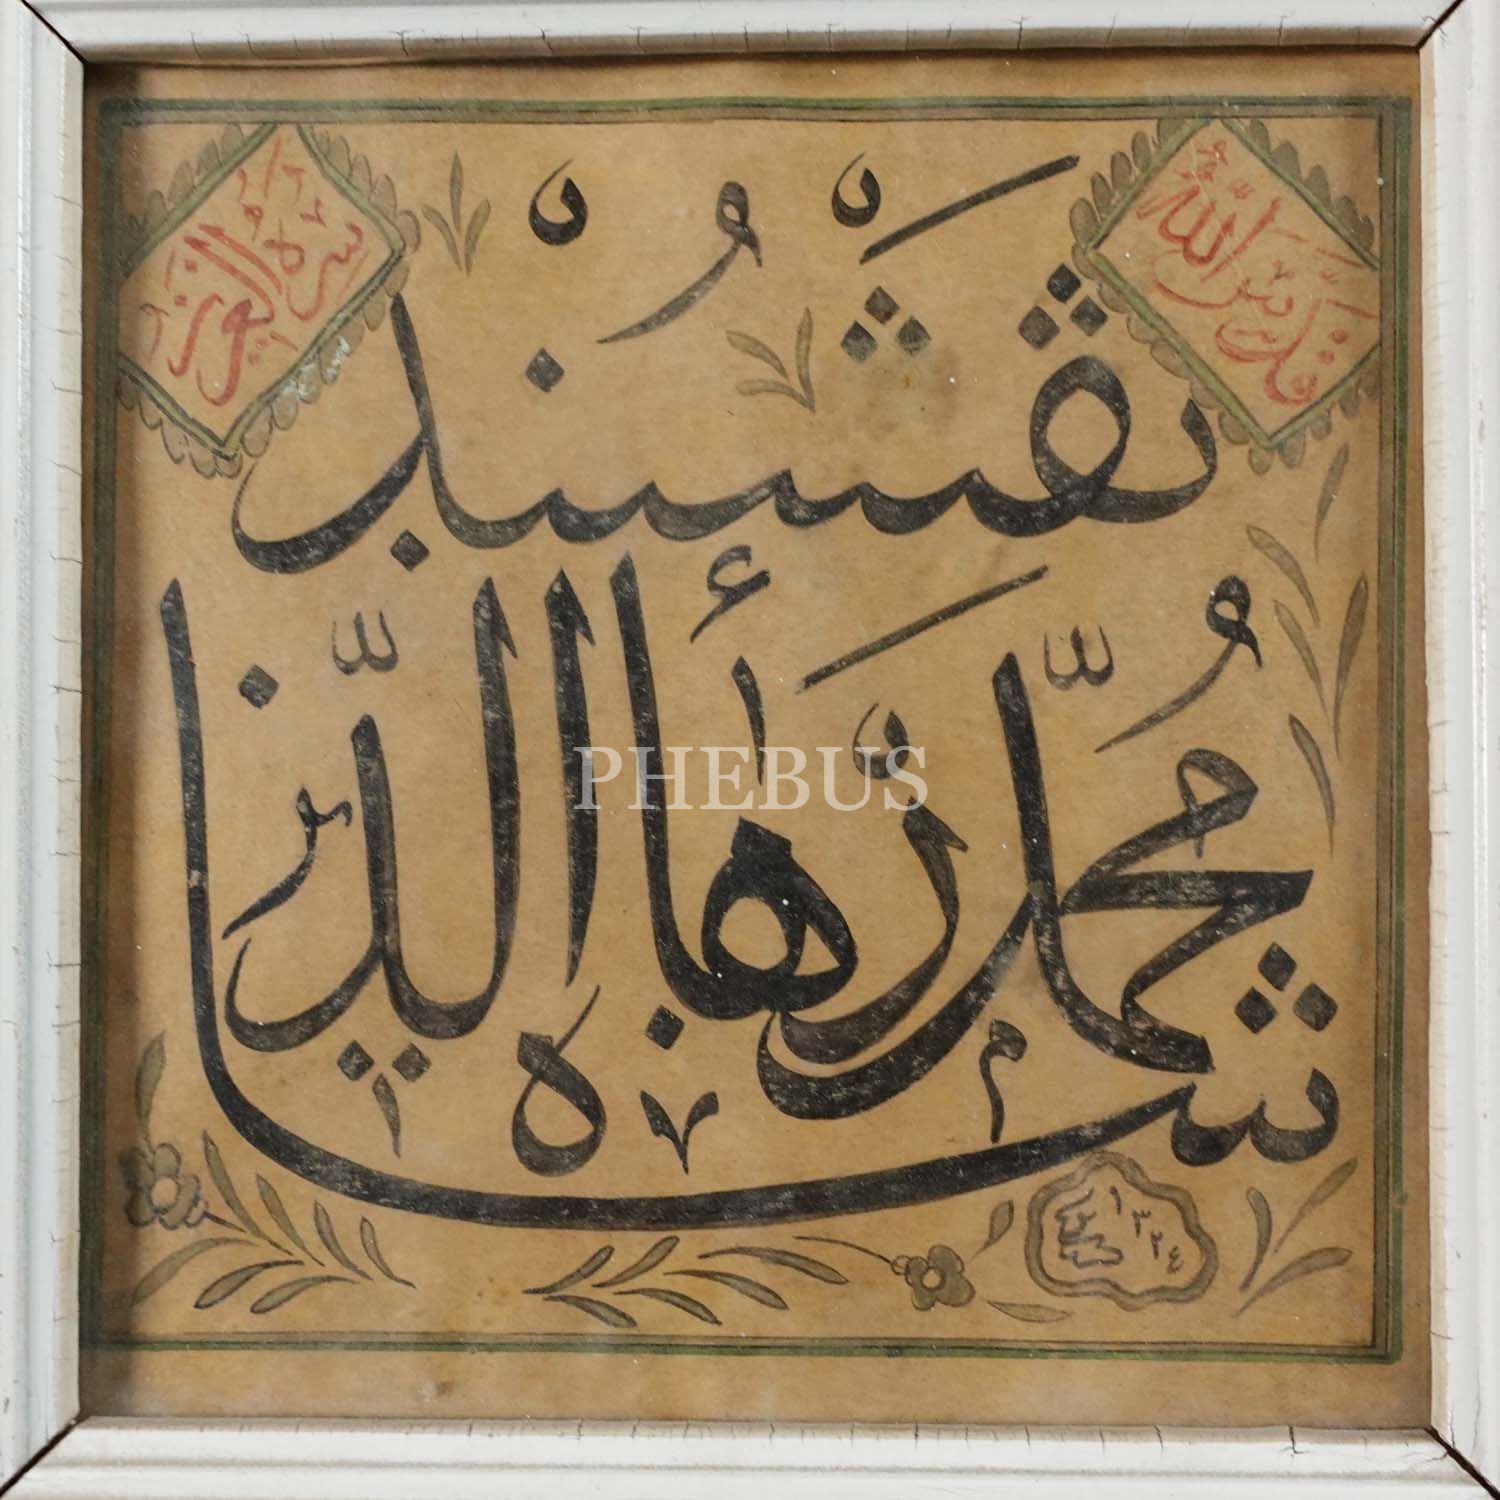 قدس الله
سره العزيز
شاه محمد بهاء الدين
نقشبند
١٣٢٤
PHEBUS